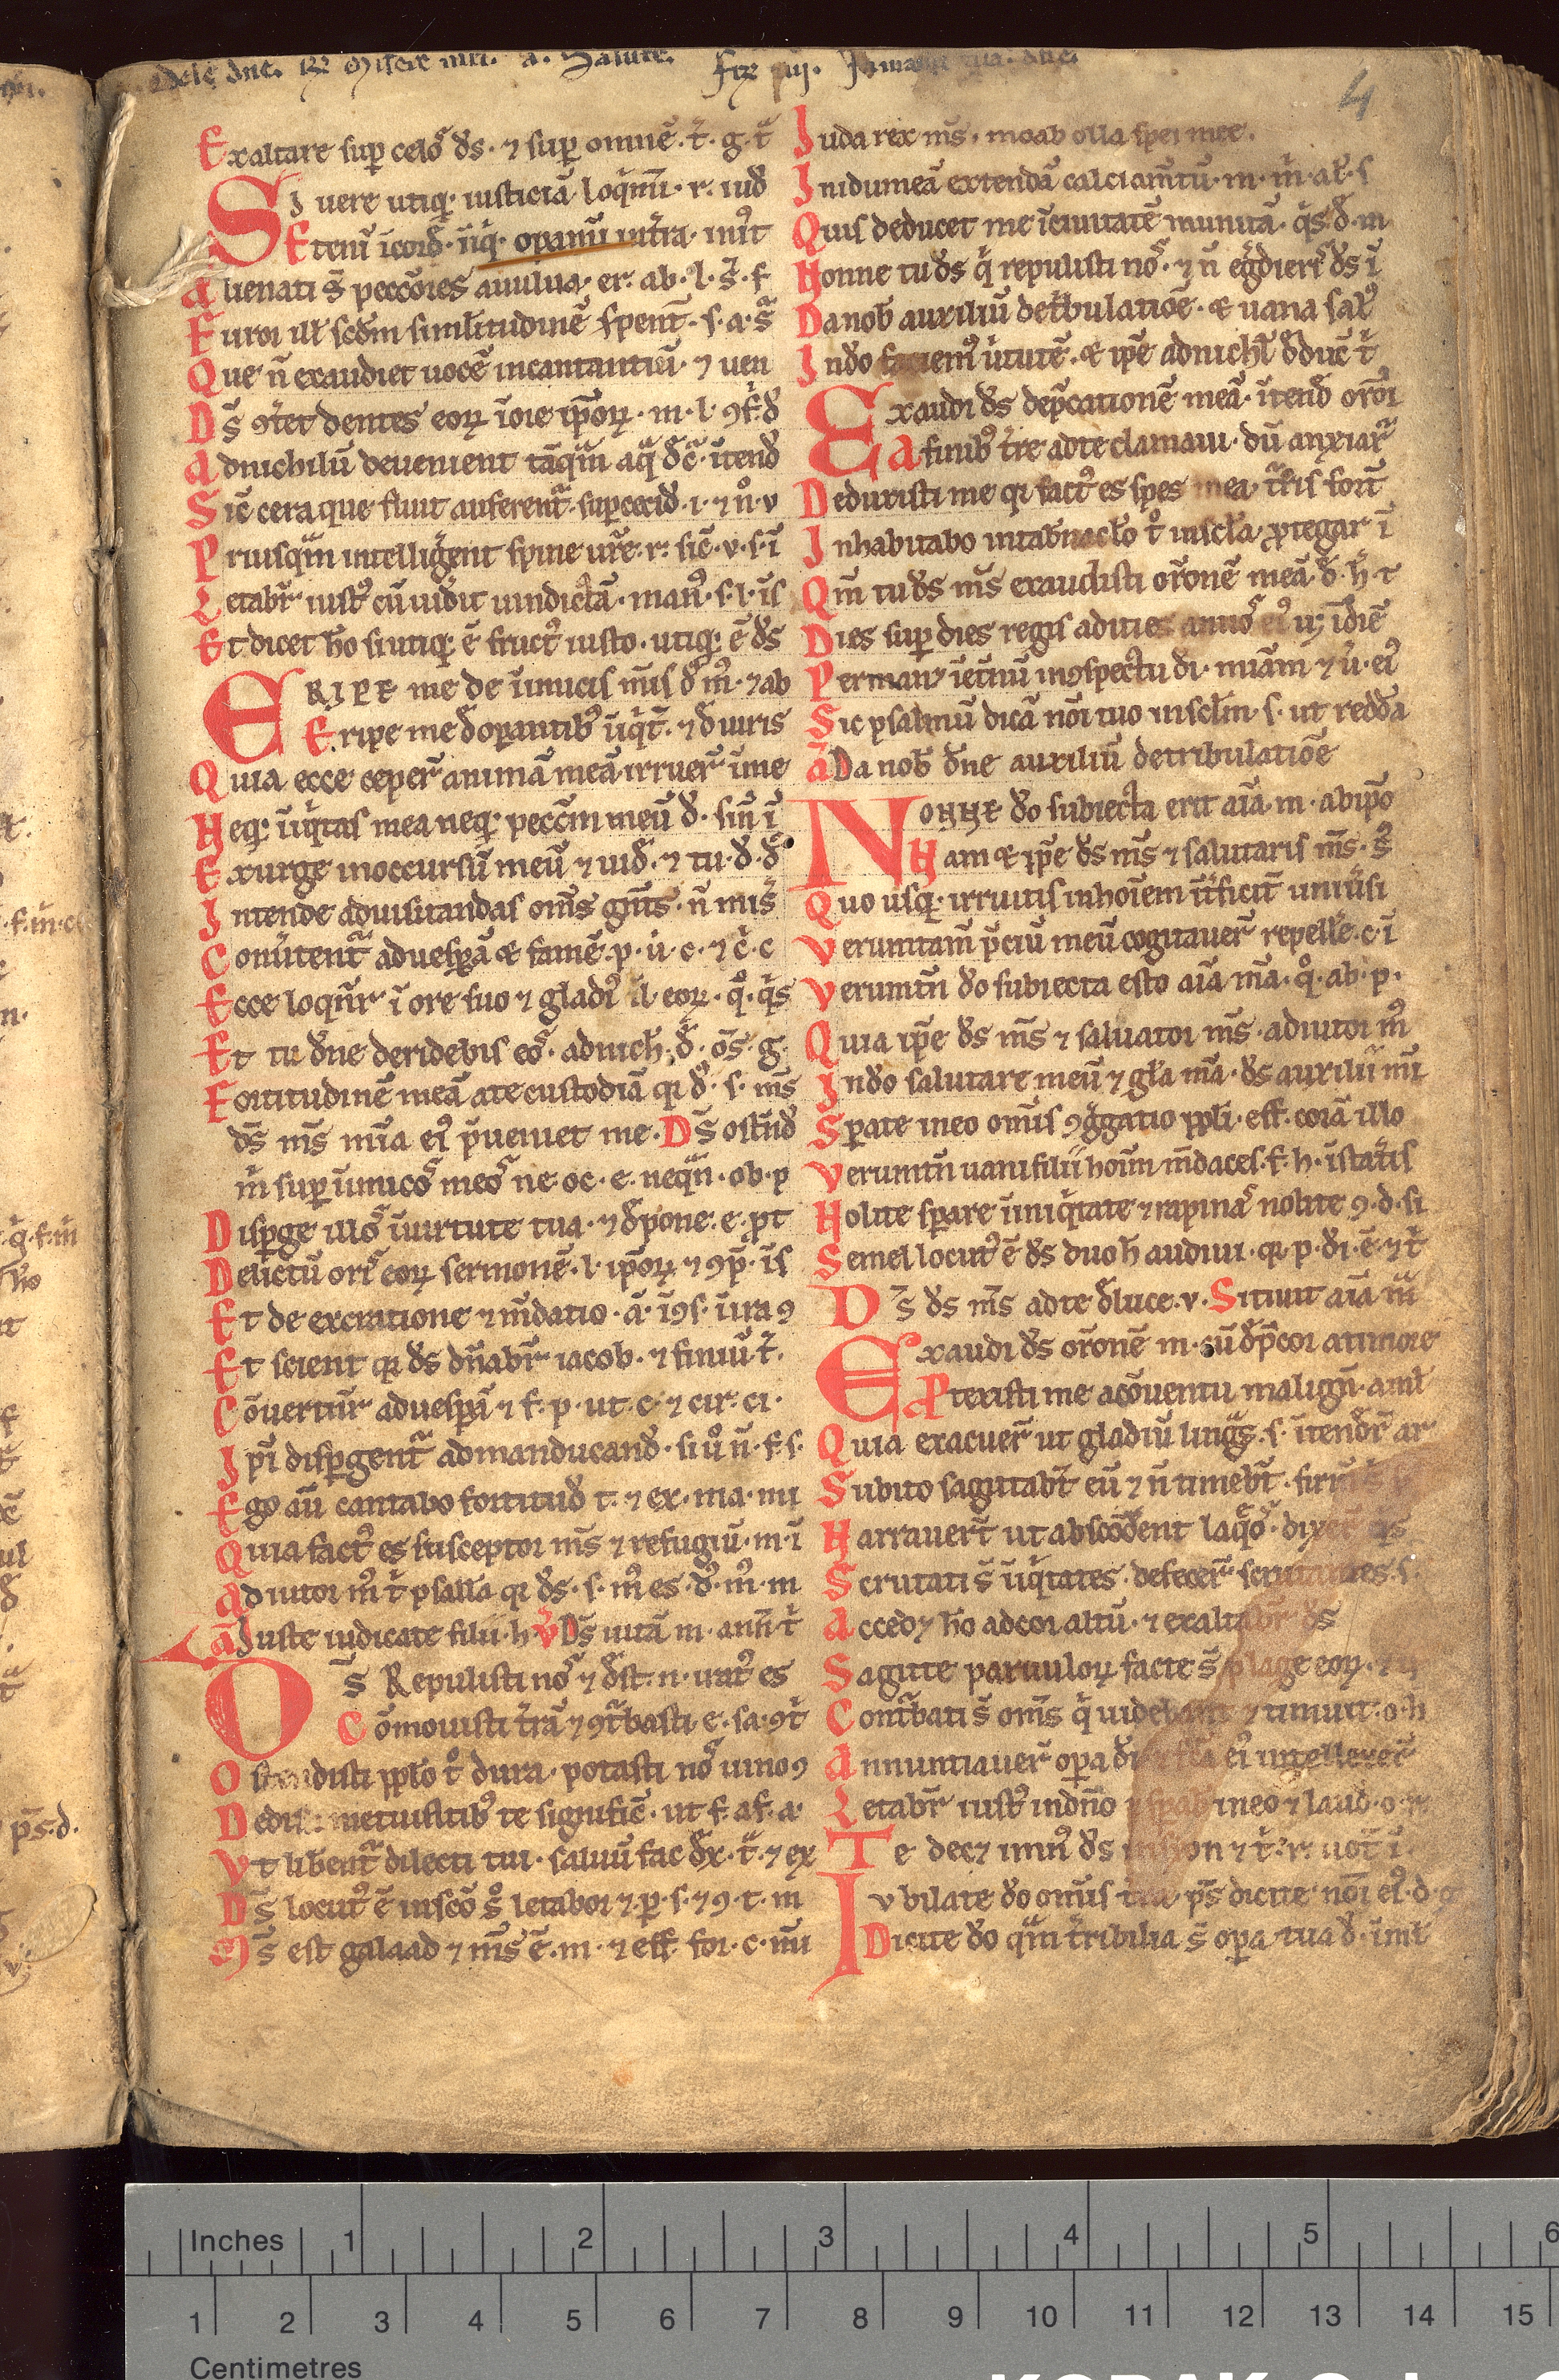 dele dne. Misere mei. a. Salutē. Fɪx iiij. In manꝰ tua. dne.
4
Exaltare suꝑ celoˢ ds̄. ⁊ suꝑ omnē. t̄. g. t̄
Si uere utiqꝫ iusticiā loq̄mī. r. iud̄
Etenī ī cord̄. īiq̄. oꝑamī ī tr̄a. iniꝰt
Alienati s̄ peccōres a uulua. er. ab. l. s̄. f
Furor ill scd̄m similitudinē sꝑent̄. s. a. s̄
Que n̄ exaudiet uocē incantantiū. ⁊ uen
Ds̄ ꝯt̄et dentes eoꝝ ī ore ip̄oꝝ. m. l. ꝯf. d̄
Ad nichilū deuenient tāq̄m aq̄ d̄c̄. ītend̄
Sic̄ cera que fluit auferent̄. suꝑ cecid̄. i. ⁊ n̄. v
Priusq̄m intelligent spine ur̄e. r. sic̄. v. s. ī
Letabr̄ iustꝰ cū uid̄it uindictā. manꝰ. s. l. īs
Et dicet ho si utiqꝫ ē fructꝰ iusto. utiqꝫ ē ds̄
ERIPE me de īimicis m̄is d̄s m̄s. ⁊ ab
Eripe me d̄ oꝑantibꝰ īiq̄t̄. ⁊ d̄ uiris
Quia ecce ceper̄ animā meā irruer̄ ī me
Neqꝫ īiq̄tas mea neqꝫ peccm̄ meū d̄. sin̄ ī
Exurge in occursū meū ⁊ uid̄. ⁊ tu. d̄. d̄
Intende ad uisitandas om̄s gn̄tes. n̄ mis̄
Conūtent̄ ad uesꝑā & famē. p. ū. c. ⁊ c̄. c
Ecce loq̄nr̄ ī ore suo ⁊ gladiꝰ ī l. eoꝝ. q̄. q̄s
Et tu dn̄e deridebis eoˢ. ad nich. d̄. ōs. g.
Fortitudinē meā a te custodiā qꝛ d̄s. s. m̄s
ds̄ m̄s mīa eiꝰ p̄ueniet me. Ds̄ ostend̄
m̄ suꝑ īimicoˢ meoˢ ne oc. e. neqn̄. ob. p
Disꝑge illoˢ ī uirtute tua. ⁊ d̄pone. e. ꝓt
Delictū oriˢ eoꝝ sermonē. l. ip̄oꝝ ⁊ ꝯp̄. īs
Et de execratione ⁊ m̄datio. ā. īꝯs. ī ira ꝯ
Et scient qꝛ ds̄ dn̄abr̄ iacob. ⁊ finiū. t̄.
Cōuertunr̄ ad uesꝑā ⁊ f. p. ut. c. ⁊ cir. ci.
Ip̄i disꝑgent̄ ad manducand̄. si ūo n̄. f. s.
Ego aū cantabo fortitud̄ t. ⁊ ex. ma. mi
Quia factꝰ es susceptor m̄s ⁊ refugiū. m. ī
Adiutor mꝰ t̄ psallā qꝛ ds̄. s. mꝰ es. d̄s. mꝰ. m
a Iuste iudicate filii. h. v Ds̄ uitā m. ann̄. t̄
Ds̄ Repulisti noˢ ⁊ d̄st. n. iratꝰ es
Cōmouisti tr̄ā ⁊ ꝯt̄basti. e. sa. ꝯt̄
Ostendisti pplo t̄o dura. potasti noˢ uino ꝯ
Dedisti metuentibꝰ te signific̄. ut f. a f. a.
Vt liben̄t̄ dilecti tui. saluū fac d̄x. t̄. ⁊ ex
Ds̄ locutꝰ ē in sc̄o s̄o letabor ⁊. p. s. ⁊ ꝯ. t. m
Ms̄ est galaad ⁊ ms̄ ē. m. ⁊ eff. for. c. mī
Iuda rex m̄s. moab olla spei mee.
In idumeā extendā calciam̄tū. m. m̄. al. s
Quis deducet me ī ciuitatē munitā. q̄s. d̄. m
Nonne tu ds̄ q̄ repulisti noˢ. ⁊ n̄ eḡdieris ds̄ ī
Da nob auxiliū de t̄bulatiōe. & uana salꝰ
In do faciemꝰ ūtutē. & ip̄e ad nichl̄ d̄duc̄ t̄
Exaudi ds̄ dep̄cationē meā. ītend̄ orōi
A finibꝰ tr̄e ad te clamaui. dū anxiar̄
Deduxisti me qꝛ factꝰ es spes mea. tr̄ris fort̄
Inhabitabo in tabn̄aclo t̄o in sclā. ꝓtegar ī
Qm̄ tu ds̄ m̄s exaudisti oronē meā. d̄. h̄. t
Dies suꝑ dies regis adicies annoˢ eiꝰ usqꝫ ī diē
Permanꝫ ī et̄nū in ꝯspectu di. miām ⁊ ū. eiꝰ
Sic psalmū dicā nōi tuo in sclm̄. s. ut reddā
a Da nob dn̄e auxiliū de tribulatiōe
NONNE do subiecta erit aīa. m. ab ip̄o
Nam & ip̄e ds̄ m̄s ⁊ salutaris m̄s. s̄
Quo usqꝫ irruitis in hoīem īt̄ficit̄ uniūsi
Verumtam̄ p̄ciū meū cogitauer̄ repelle. c. ī
Verumtn̄ do subiecta esto aīa mā. q̄. ab. p.
Quia ip̄e ds̄ m̄s ⁊ saluator m̄s. adiutor mꝰ
In do salutare meū ⁊ glā mā. ds̄ auxilii mī
Sꝑate in eo omīs ꝯḡgatio ppli. eff. corā illo
Verumtn̄ uani filii hoūm m̄daces. f. h. ī stat̄is
Nolite sꝑare ī iniq̄tate ⁊ rapinaˢ nolite ꝯ. d. si
Semel locutꝰ ē ds̄ duo h̄ audiui. qꝛ p. di. ē. ⁊ t̄
Ds̄ ds̄ m̄s ad te d̄ luce. v. Sitiuit aīa m̄
Exaudi ds̄ oronē m. cū d̄p̄cor a timore
Ptexisti me a cōuentu malign̄. a ml̄
Quia exacuer̄ ut gladiū linḡs. s. ītender̄ ar
Subito sagitabt̄ eū ⁊ n̄ timebt̄. firm̄ s̄
Narrauert̄ ut absconderent laq̄oˢ. dixer̄ q̄s
Scrutati s̄ īiq̄tates. defecer̄ scrutantes. s
Accedꝫ ho ad cor altū. ⁊ exaltabr̄ ds̄
Sagitte paruuloꝝ facte s̄ plage eoꝝ.
Cont̄bati s̄ om̄s q̄ uidebant ⁊ timuit. o. h
Annuntiauer̄ oꝑa di ⁊ fcā eiꝰ intellexer̄
Letabr̄ iustꝰ in dn̄o ⁊ sꝑab in eo ⁊ laud. o.
Te decꝫ imnꝰ ds̄ in sion ⁊ t̄. r. uot̄ ī.
Iubilate do omīs tr̄a. ps̄ dicite nōi eiꝰ. d. g
Dicite do q̄m tr̄ribilia s̄ oꝑa tua d̄. ī ml̄
Inches 1 2 3 4 5 6
1 2 3 4 5 6 7 8 9 10 11 12 13 14 15
Centimetres